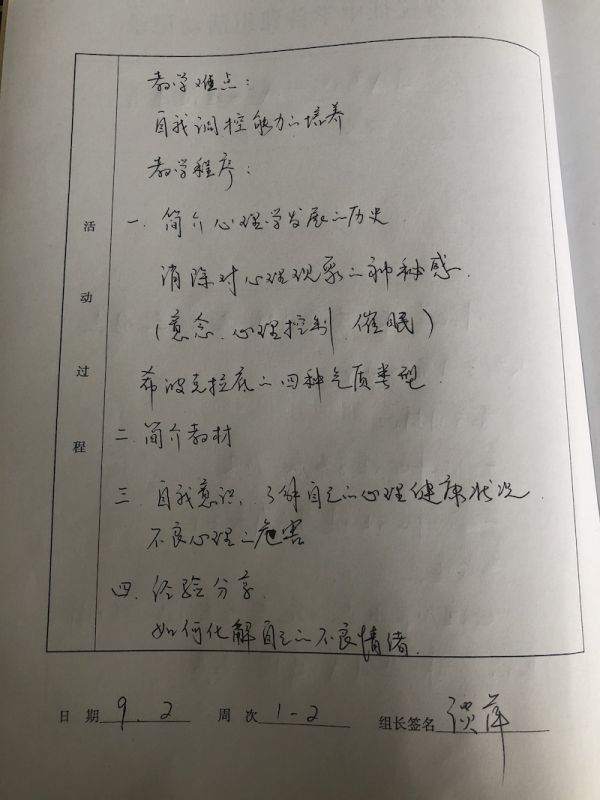 教学难点：
自我调控能力的培养
教学程序：
活动过程
一. 简介心理学发展的历史
消除对心理现象的神秘感.
（意念、心理控制、催眠）
希波克拉底的四种气质类型.
二. 简介教材
三. 自我意识, 了解自己的心理健康状况.
不良心理之危害
四. 经验分享.
如何化解自己的不良情绪.
日 期 9. 2 周 次 1-2 组长签名